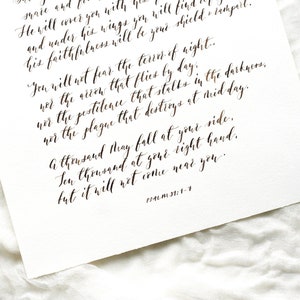 He will cover you with his
and under his wings you will find
his faithfulness will be your shield & rampart.
You will not fear the terror of night,
nor the arrow that flies by day,
nor the pestilence that stalks in the darkness,
nor the plague that destroys at midday.
A thousand may fall at your side,
Ten thousand at your right hand,
but it will not come near you.
PSALM 91: